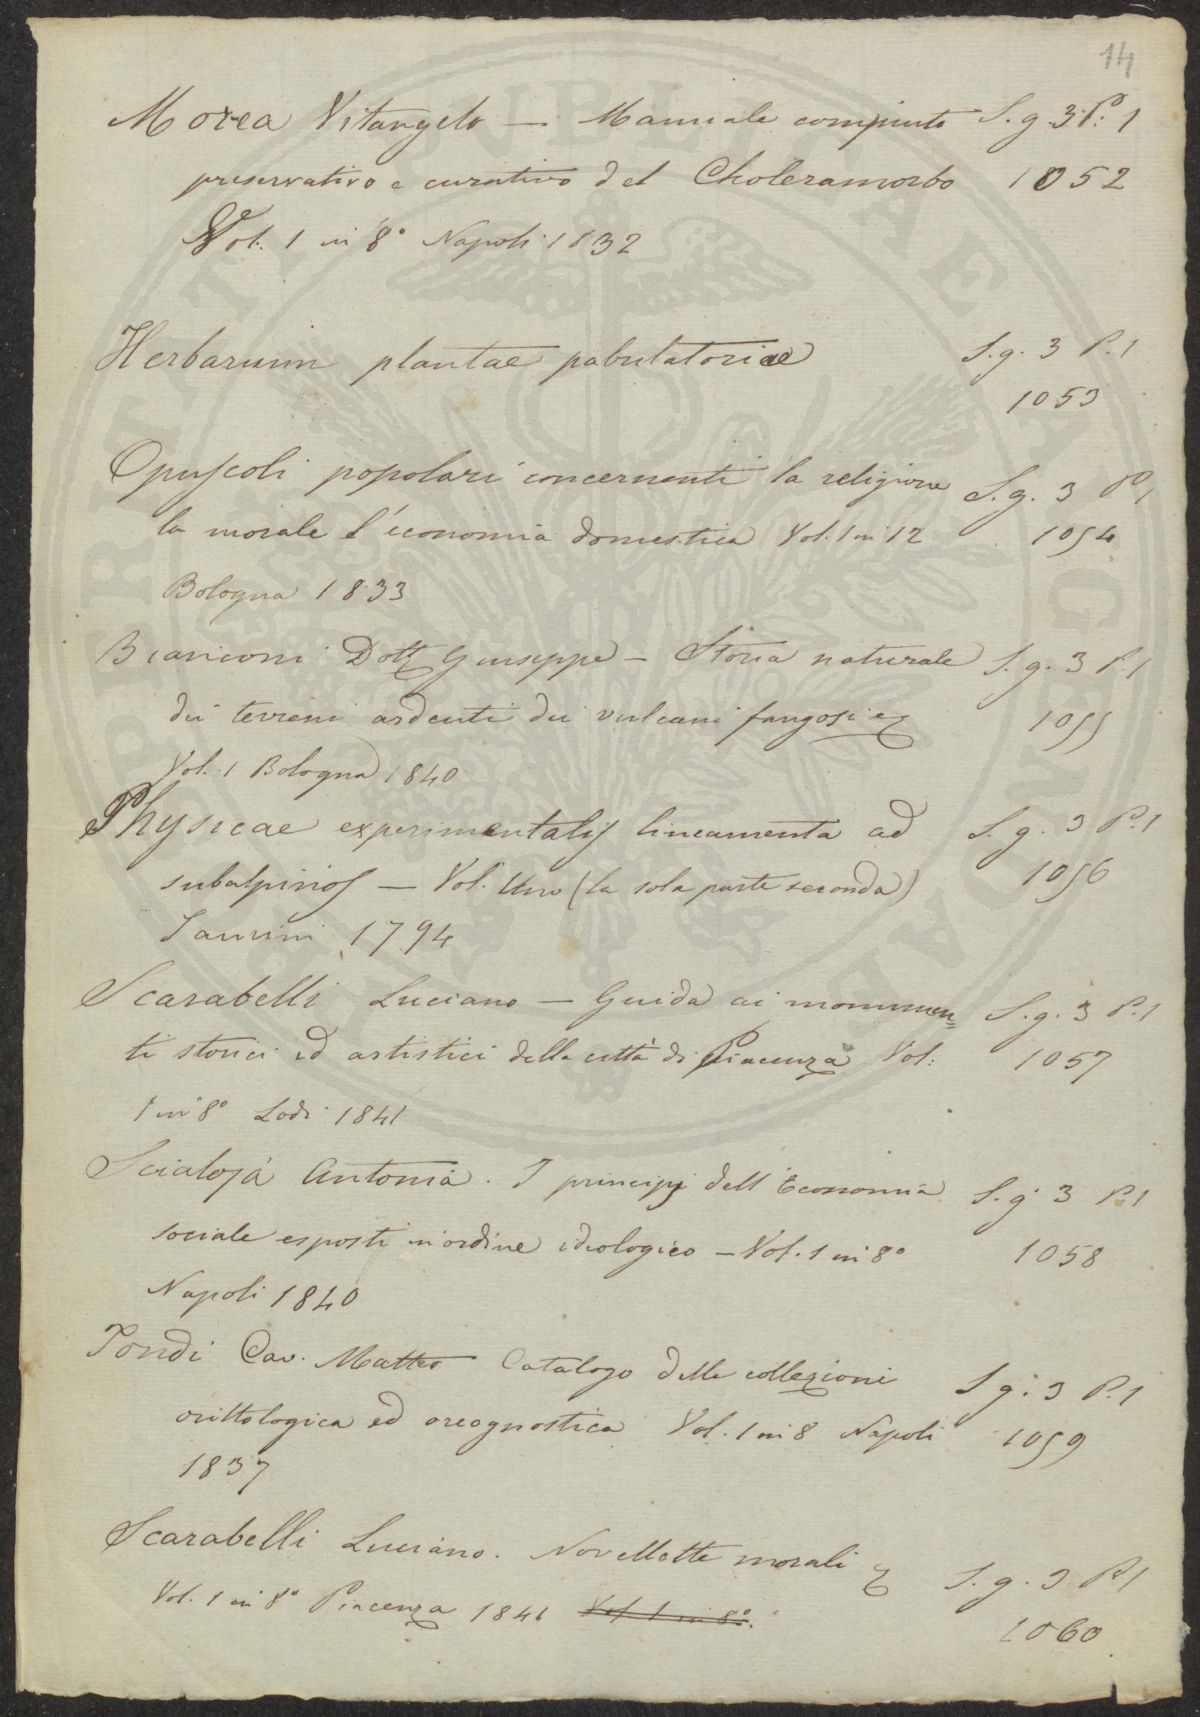 14
Morea Vitangelo — Manuale compiuto S. g. 3 P. 1
preservativo e curativo del Choleramorbo 1052
Vol. 1 in 8° Napoli 1832
Herbarum plantae pabulatoriae S. g. 3 P. 1
1053
Opuscoli popolari concernenti la religione S. g. 3 P. 1
la morale l'economia domestica Vol. 1 in 12 1054
Bologna 1833
Bianconi Dott Giuseppe — Storia naturale S. g. 3 P. 1
dei terreni ardenti dei vulcani fangosi 1055
Vol. 1 Bologna 1840
Physicae experimentalis lineamenta ad S. g. 3 P. 1
subalpinos — Vol. Uno (la sola parte seconda) 1056
Taurini 1794
Scarabelli Luciano — Guida ai monumen= S. g. 3 P. 1
ti storici ed artistici della città di Piacenza Vol: 1057
1 in 8° Lodi 1841
Scialoja Antonio. I principj dell'Economia S. g. 3 P. 1
sociale esposti in ordine ideologico — Vol. 1 in 8° 1058
Napoli 1840
Tondi Cav. Matteo Catalogo delle collezioni S. g. 3 P. 1
orittologica ed oreognostica Vol. 1 in 8 Napoli 1059
1837
Scarabelli Luciano. Novellette morali S. g. 3 P. 1
Vol. 1 in 8° Piacenza 1841 Vol. 1 in 8°. 1060